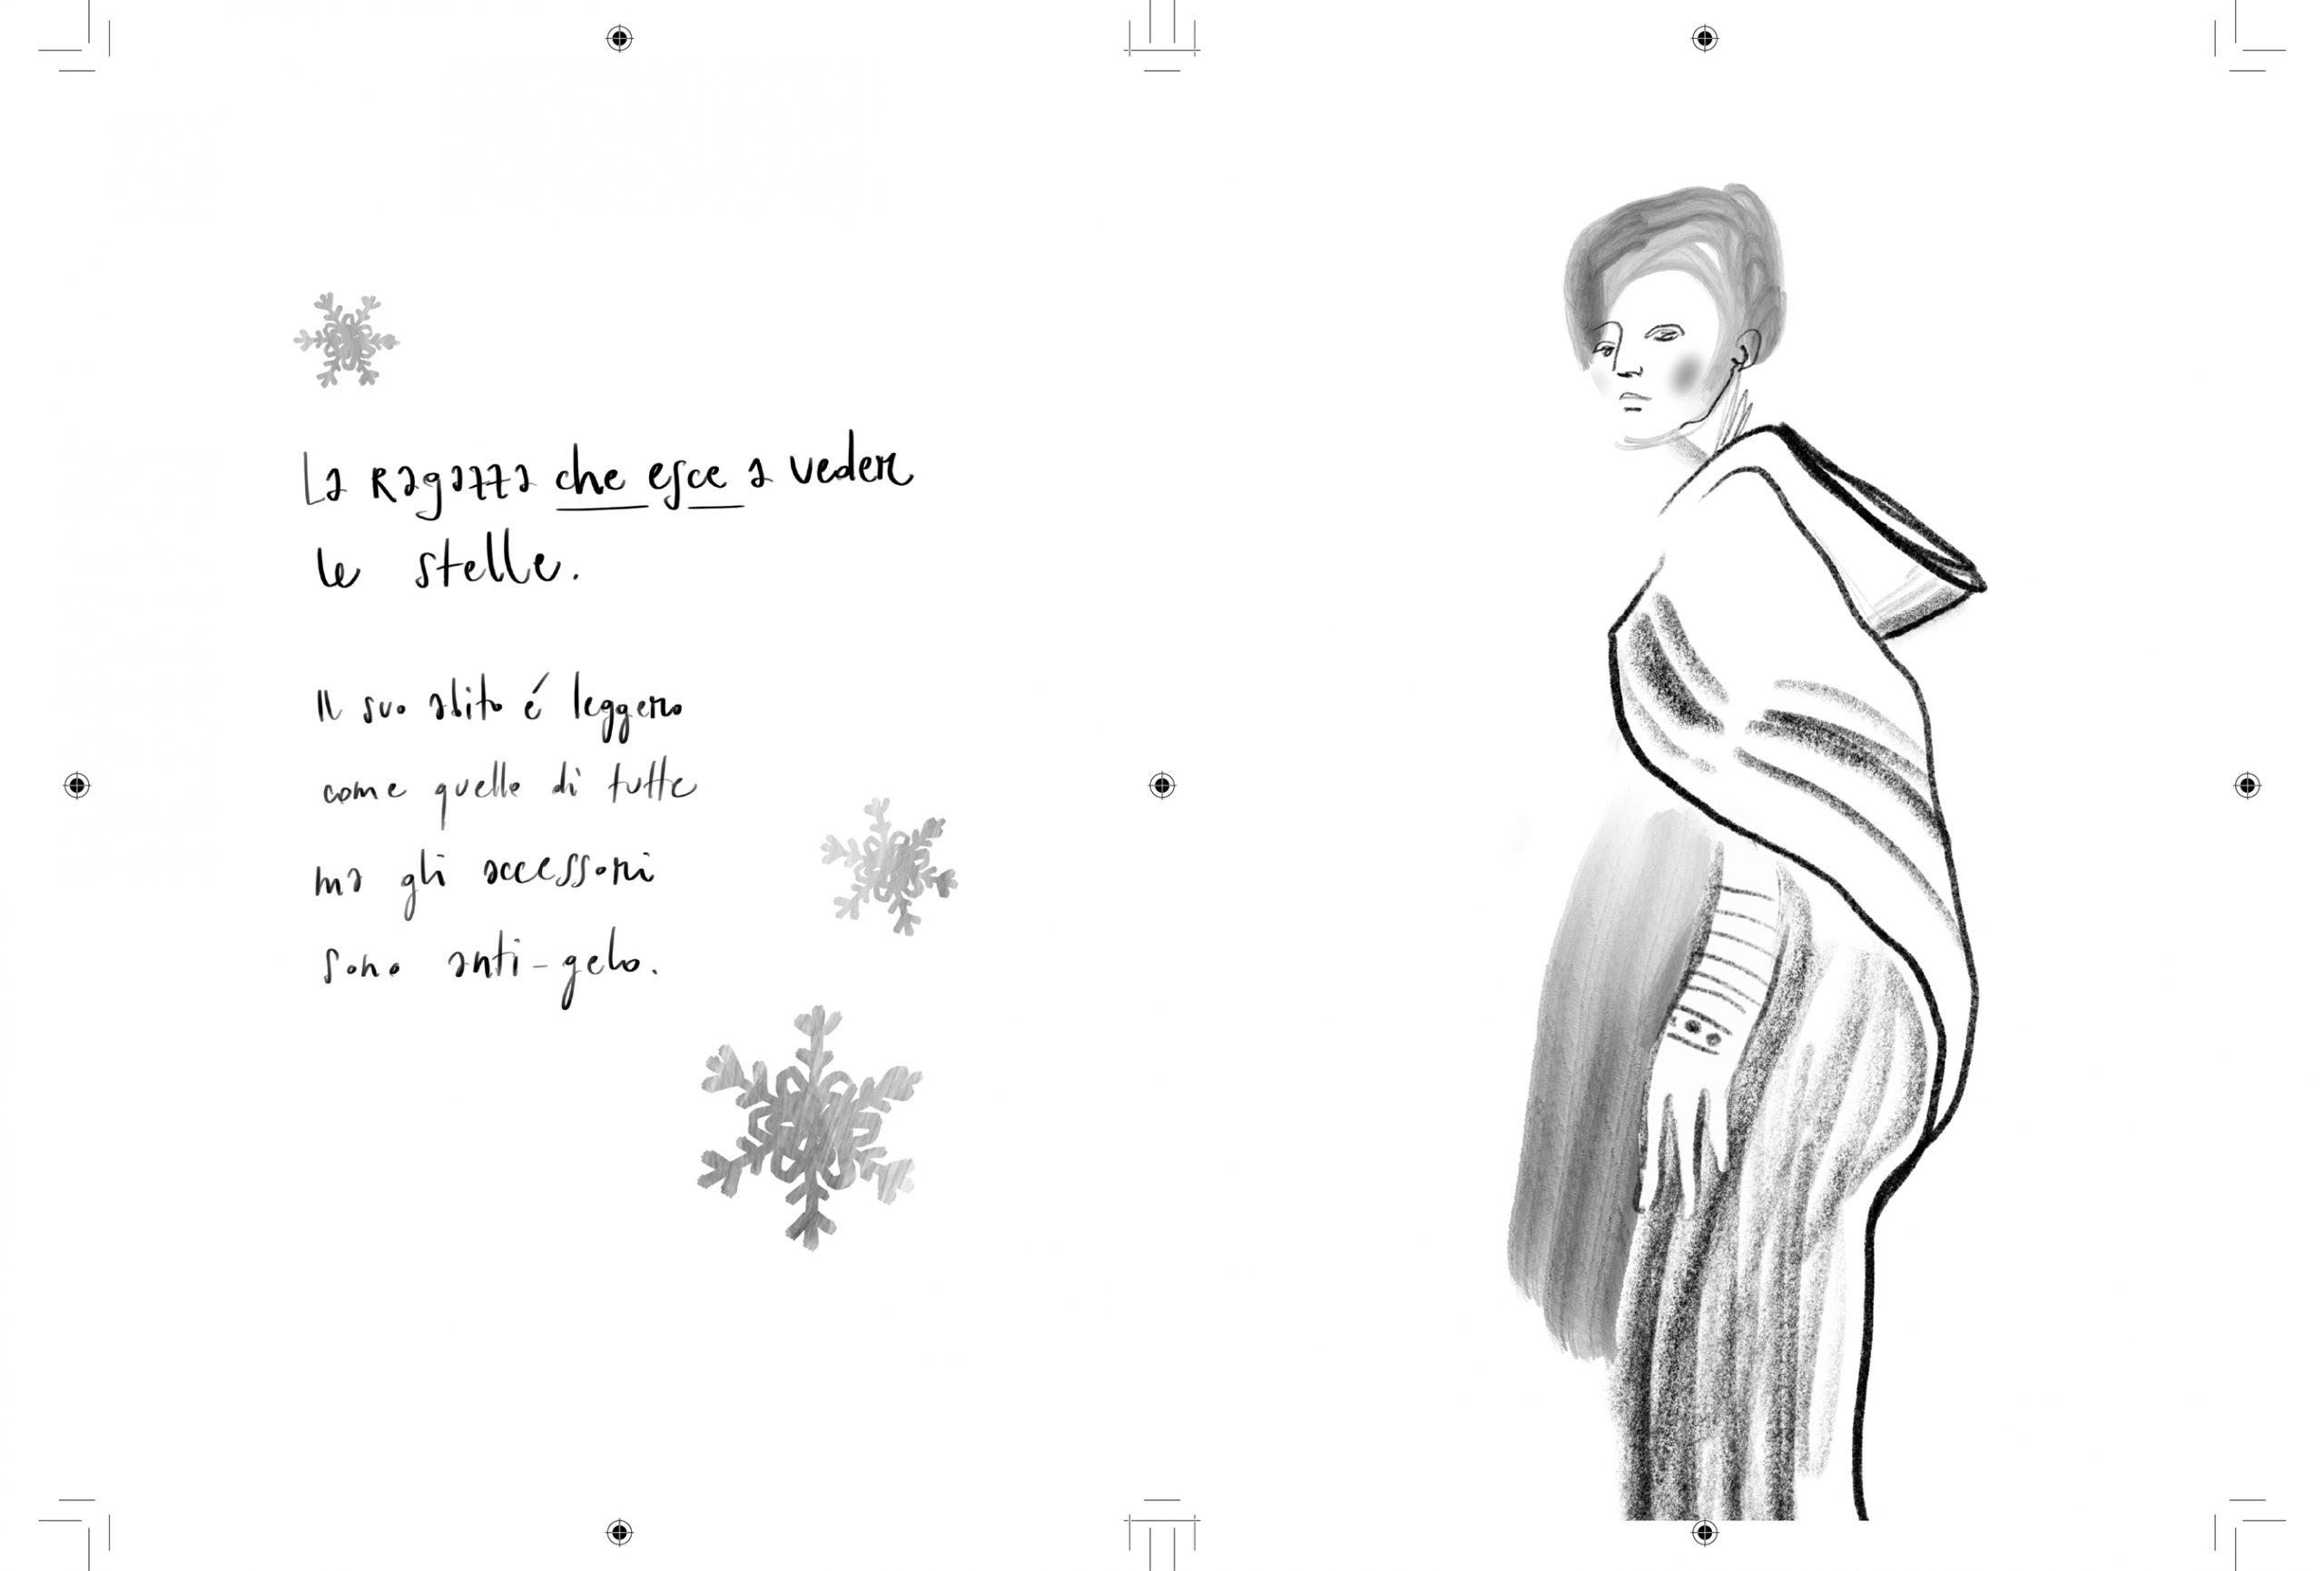 La Ragazza che esce a veder
le stelle.
Il suo abito é leggero
come quello di tutte
ma gli accessori
sono anti-gelo.